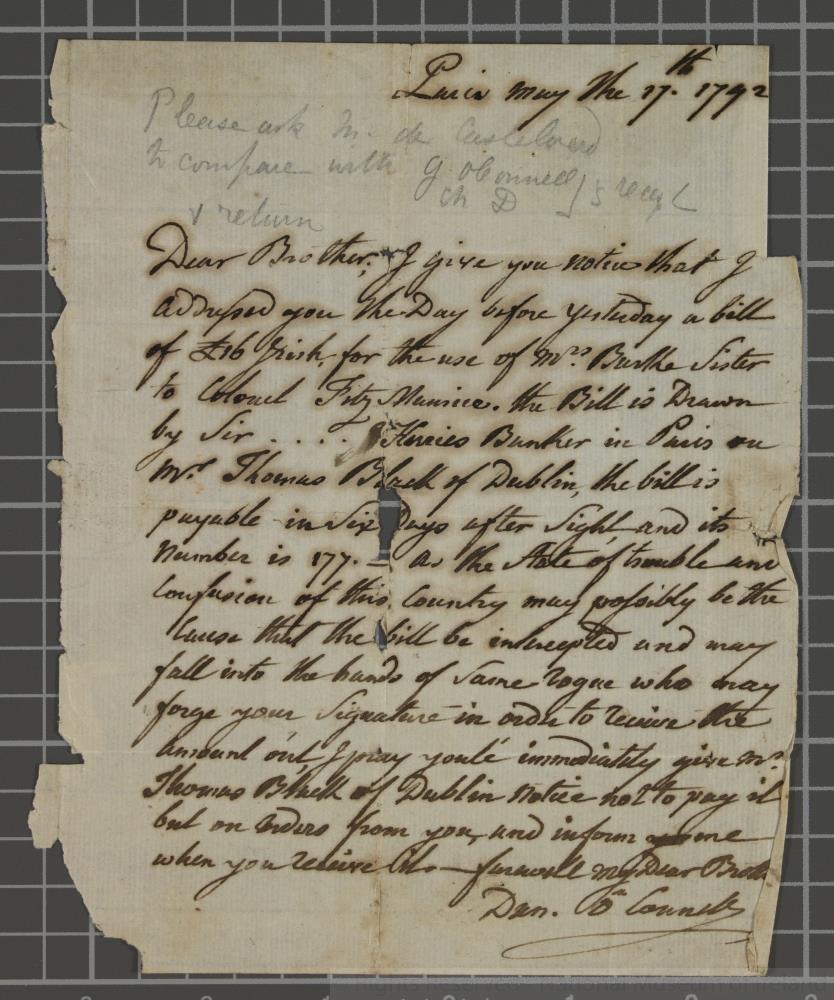 Paris may the 17.th 1792
Please ask M. de
to compare with G OConnell's
Ch D
& return
Dear Brother, I give you notice that I
addressed you the Day before yesterday a bill
of £16 Irish, for the use of Mrs. Burke Sister
to Colonel Fitz Maurice. the Bill is Drawn
by Sir . . . . Herries Banker in Paris on
Mr. Thomas Black of Dublin, the bill is
payable in Six Days after Sight and its
Number is 177. — as the State of trouble and
Confusion of this Country may possibly be the
Cause that the bill be intercepted and may
fall into the hands of Some rogue who may
forge your Signature in order to receive the
amount out, I pray you'l immediately give Mr.
Thomas Black of Dublin notice not to pay it
but on orders from you, and inform me
when you receive it. — farewell my Dear Broth
Dan. O'Connell